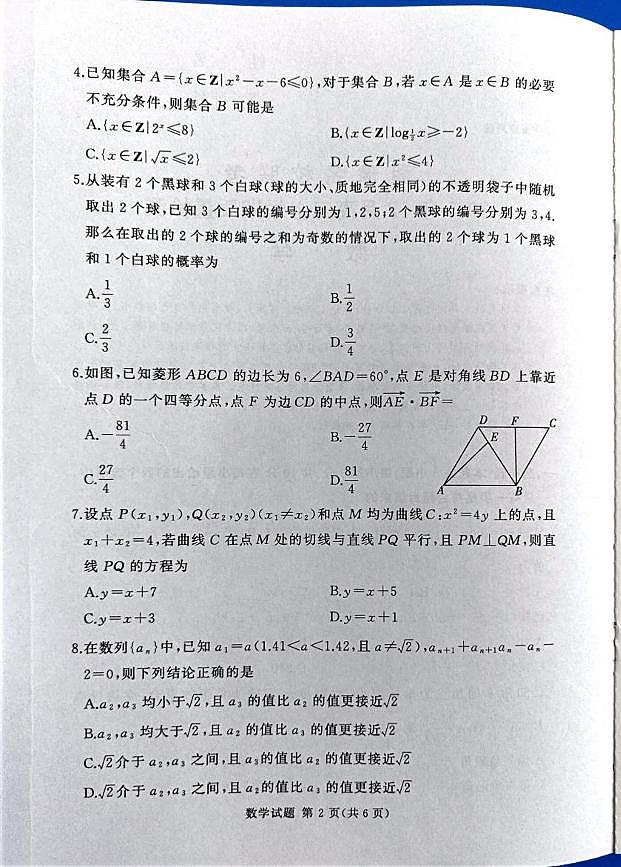 4.已知集合 A={x∈Z|x²-x-6≤0},对于集合 B,若 x∈A 是 x∈B 的必要
不充分条件,则集合 B 可能是
A.{x∈Z|2ˣ≤8} B.{x∈Z|log½x≥-2}
C.{x∈Z|√x≤2} D.{x∈Z|x²≤4}
5.从装有 2 个黑球和 3 个白球(球的大小、质地完全相同)的不透明袋子中随机
取出 2 个球,已知 3 个白球的编号分别为 1,2,5;2 个黑球的编号分别为 3,4.
那么在取出的 2 个球的编号之和为奇数的情况下,取出的 2 个球为 1 个黑球
和 1 个白球的概率为
A.1/3 B.1/2
C.2/3 D.3/4
6.如图,已知菱形 ABCD 的边长为 6,∠BAD=60°,点 E 是对角线 BD 上靠近
点 D 的一个四等分点,点 F 为边 CD 的中点,则AE→·BF→=
A.-81/4 B.-27/4
C.27/4 D.81/4
D F C
E
A B
7.设点 P(x₁,y₁),Q(x₂,y₂)(x₁≠x₂)和点 M 均为曲线 C:x²=4y 上的点,且
x₁+x₂=4,若曲线 C 在点 M 处的切线与直线 PQ 平行,且 PM⊥QM,则直
线 PQ 的方程为
A.y=x+7 B.y=x+5
C.y=x+3 D.y=x+1
8.在数列{aₙ}中,已知 a₁=a(1.41<a<1.42,且 a≠√2),aₙ₊₁+aₙ₊₁aₙ-aₙ-
2=0,则下列结论正确的是
A.a₂,a₃ 均小于√2,且 a₃ 的值比 a₂ 的值更接近√2
B.a₂,a₃ 均大于√2,且 a₂ 的值比 a₃ 的值更接近√2
C.√2介于 a₂,a₃ 之间,且 a₃的值比 a₂ 的值更接近√2
D.√2介于 a₂,a₃ 之间,且 a₂的值比 a₃ 的值更接近√2
数学试题 第 2 页(共 6 页)